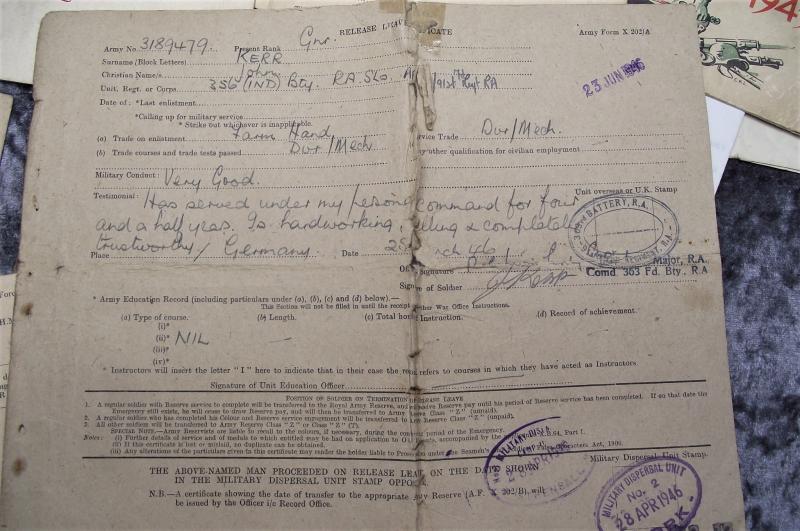 RELEASE LEAVE CERTIFICATE Army Form X 202/A
Army No. 3189479 Present Rank Gnr.
Surname (Block Letters) KERR
Christian Name/s John
Unit, Regt. or Corps 356 (IND) Bty. R.A. 91st Regt RA
23 JUN 1946
Date of : *Last enlistment
*Calling up for military service
* Strike out whichever is inapplicable.
(a) Trade on enlistment Farm Hand Service Trade Dvr/Mech.
(b) Trade courses and trade tests passed Dvr/Mech any other qualification for civilian employment
Military Conduct : Very Good.
Testimonial : Has served under my personal command for four
and a half years. Is hardworking, willing & completely
trustworthy
Unit overseas or U.K. Stamp
BATTERY, R.A.
REGIMENT, R.A.
Place Germany. Date 46
Signature Major, R.A.
Comd 363 Fd. Bty. R.A
Signature of Soldier J Kerr
* Army Education Record (including particulars under (a), (b), (c) and (d) below).—
This Section will not be filled in until the receipt of further War Office Instructions.
(a) Type of course. (b) Length. (c) Total hours Instruction. (d) Record of achievement.
(i)*
(ii)* NIL
(iii)*
(iv)*
* Instructors will insert the letter " I " here to indicate that in case the record refers to courses in which they have acted as Instructors.
Signature of Unit Education Officer
POSITION OF SOLDIER ON TERMINATION OF RELEASE LEAVE
1. A regular soldier with Reserve service to complete will be transferred to the Royal Army Reserve, and will receive Reserve pay until his period of Reserve service has been completed. If so that date the
Emergency still exists, he will cease to draw Reserve pay, and will then be transferred to Army Class " Z " (unpaid).
2. A regular soldier who has completed his Colour and Reserve service engagement will be transferred to Army Reserve Class " Z " (unpaid).
3. All other soldiers will be transferred to Army Reserve Class " Z " or Class " Z " (T).
SPECIAL NOTE.—Army Reservists are liable to recall to the colours, if necessary, during the period of Emergency.
Notes : (i) Further details of service and of medals to which entitled may be had on application to accompanied by the A.B.64, Part I.
(ii) If this certificate is lost or mislaid, no duplicate can be obtained.
(iii) Any alterations of the particulars given in this certificate may render the holder liable to prosecution under the Seamen's Characters Act, 1906.
MILITARY DISPERSAL
APR 1946
Military Dispersal Unit Stamp.
THE ABOVE-NAMED MAN PROCEEDED ON RELEASE LEAVE ON THE DATE SHOWN
IN THE MILITARY DISPERSAL UNIT STAMP OPPOSITE
MILITARY DISPERSAL UNIT
No. 2
APR 1946
N.B.—A certificate showing the date of transfer to the appropriate Army Reserve (A.F. X 202/B), will
be issued by the Officer i/c Record Office.